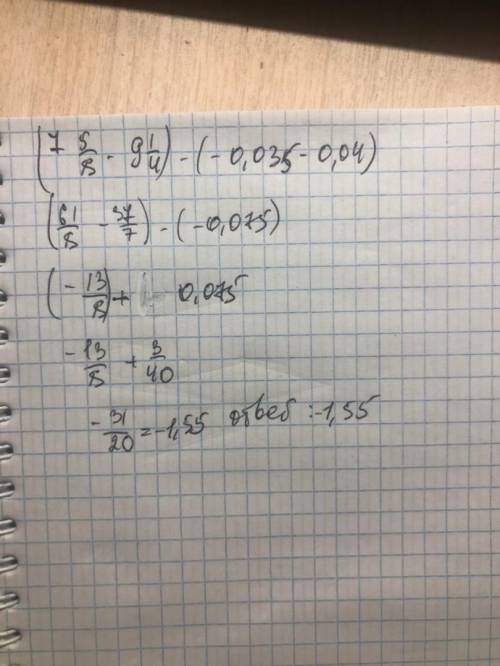 (7 5/8 - 9 1/4) - (-0,035 - 0,04)
(61/8 - 37/7) - (-0,075)
(-13/8) + 0,075
-13/8 + 3/40
-31/20 = -1,55 ответ: -1,55